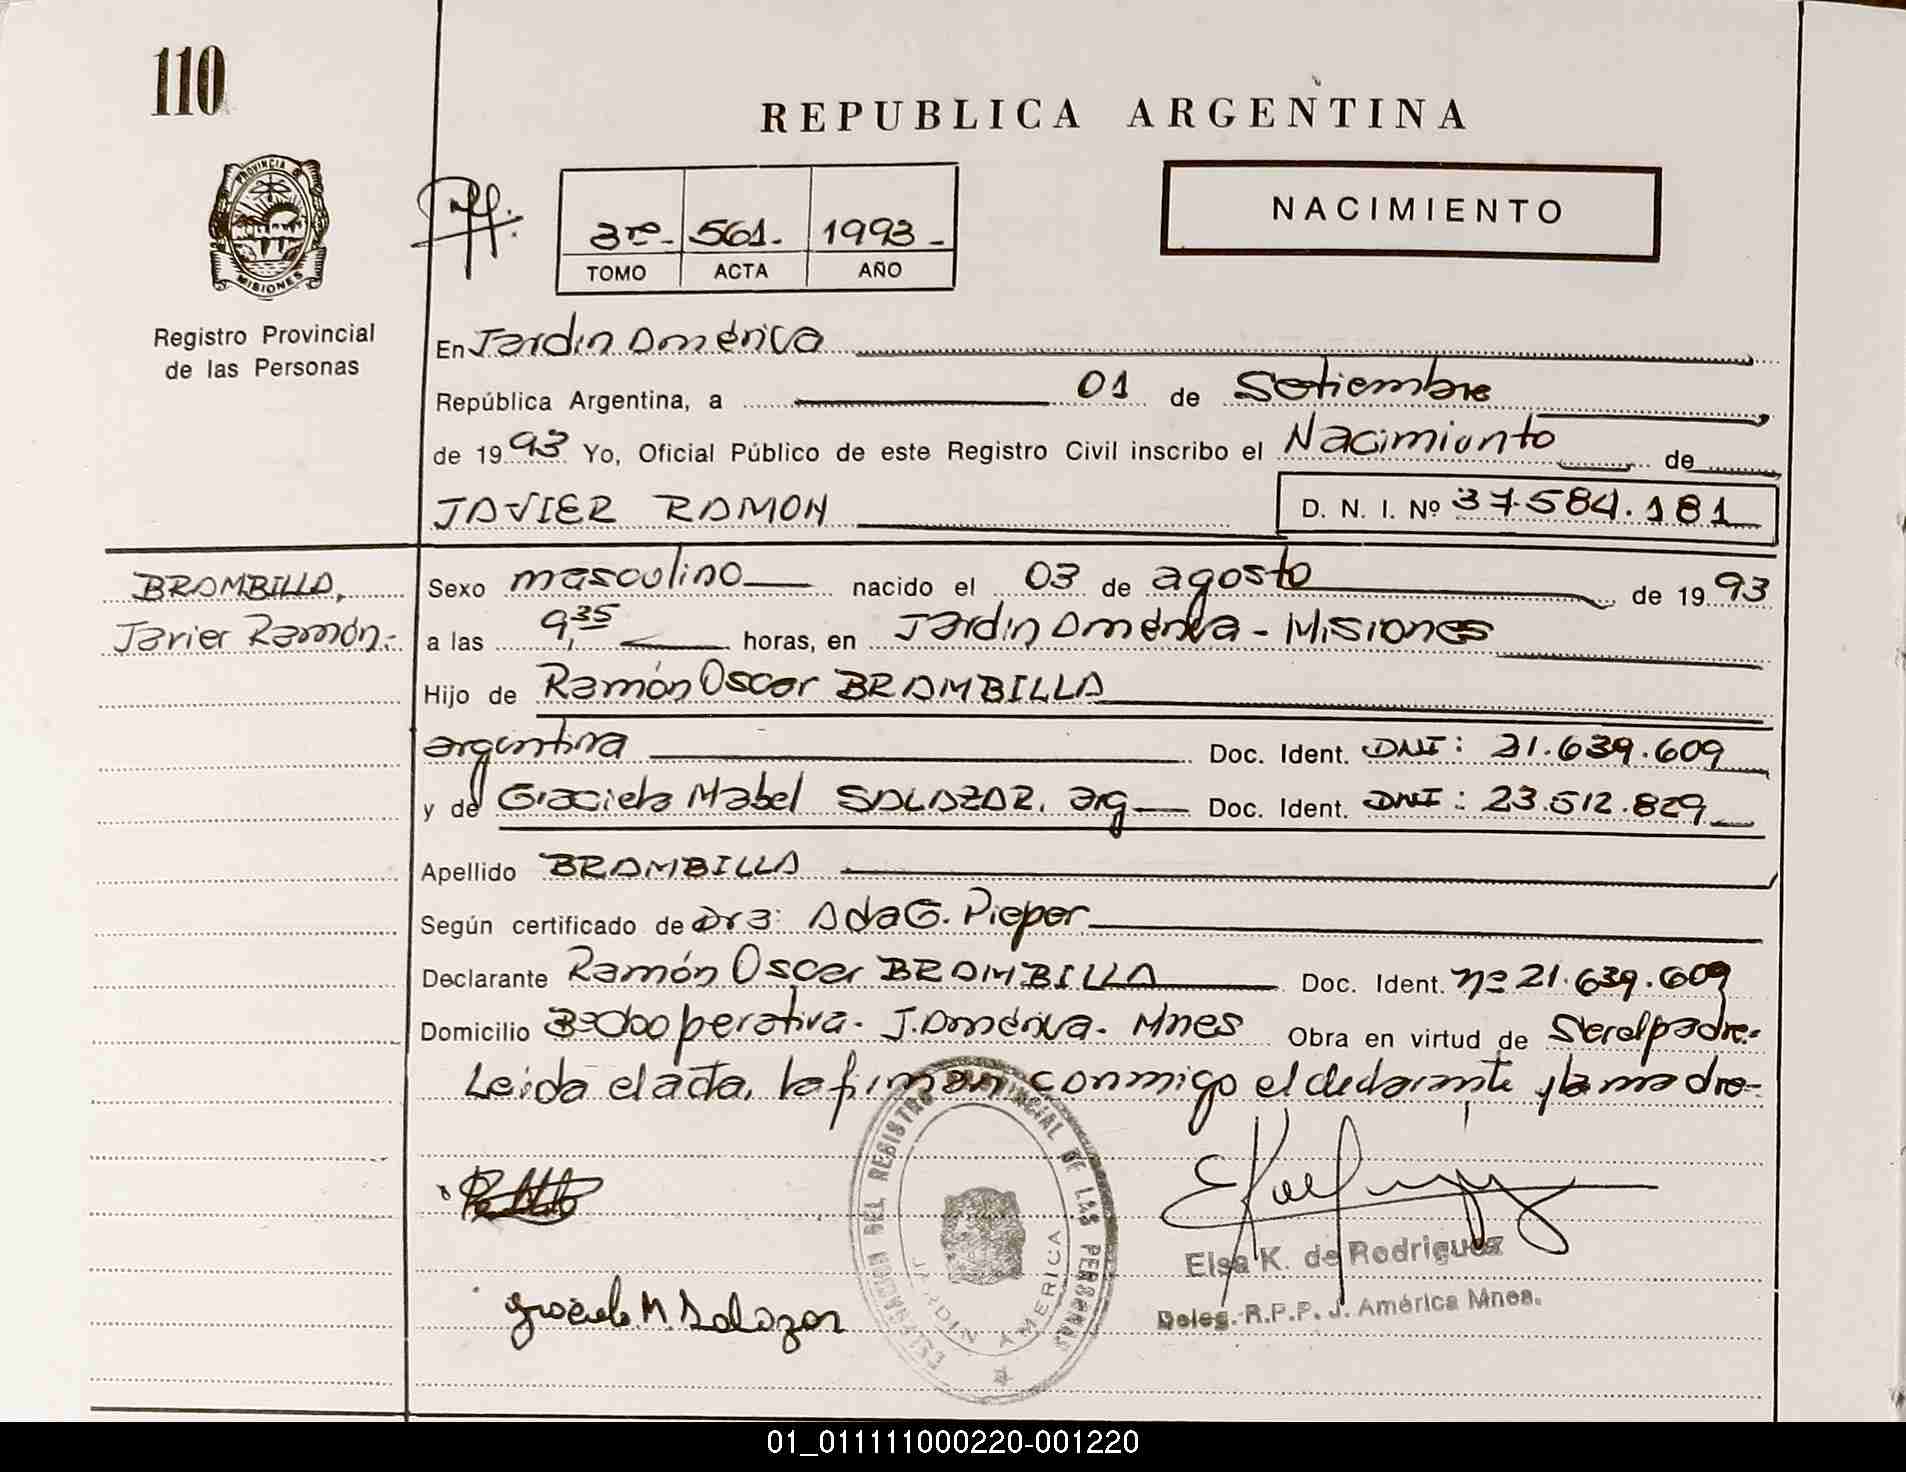 110
REPUBLICA ARGENTINA
PROVINCIA
MISIONES
Registro Provincial
de las Personas
3re- 561. 1993-
TOMO ACTA AÑO
NACIMIENTO
En Jardin América
República Argentina, a 01 de Setiembre
de 1993 Yo, Oficial Público de este Registro Civil inscribo el Nacimiento de
JAVIER RAMON D. N. I. Nº 37.584.181
BRAMBILLA,
Javier Ramón.-
Sexo masculino nacido el 03 de agosto de 1993
a las 9,35 horas, en Jardin América - Misiones
Hijo de Ramón Oscar BRAMBILLA
argentina Doc. Ident. DNI: 21.639.609
y de Graciela Mabel SALAZAR. arg Doc. Ident. DNI: 23.512.829
Apellido BRAMBILLA
Según certificado de Dra: Ada G. Pieper
Declarante Ramón Oscar BRAMBILLA Doc. Ident. nº 21.639.609
Domicilio Bº Cooperativa. J. América. Mnes Obra en virtud de Ser el padre.-
Leida el acta, la firman conmigo el declarante y la madre-
DEL REGISTRO PROVINCIAL DE LAS PERSONAS
JARDIN AMERICA
Elsa K. de Rodriguez
Deleg. R.P.P. J. América Mnes.
Graciela M. Salazar
01_011111000220-001220